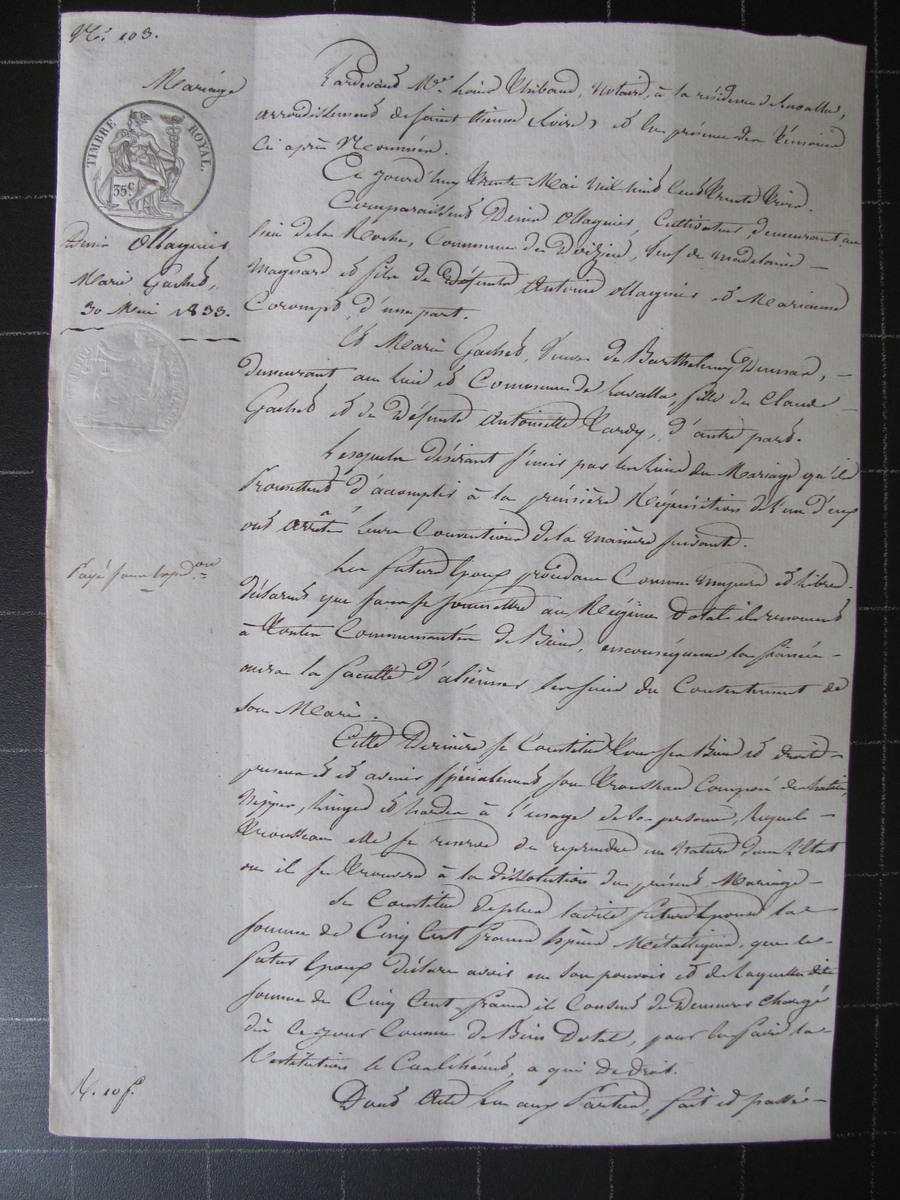 N.° 103.
Mariage
TIMBRE ROYAL.
35c
Denis Ollagnier
Marie Gachet,
30 Mai 1833.
Payé pour
R. 10 f.
Pardevant Me. Louis Thibaud, Notaire, à la résidence de Lavalla,
arrondissement de Saint Etienne Loire, et en présence des témoins
ci après Nommés.
Ce jourd'huy trente Mai mil huit cent trente trois.
Comparaissent Denis Ollagnier, Cultivateur demeurant au
lieu de la Roche, Commune de Doizieu, Veuf de Madelaine
Magnard et fils de Défunts Antoine Ollagnier et Marianne
Corompt, d'une part.
Et Marie Gachet, Veuve de Barthelemy
demeurant au lieu et Commune de Lavalla, fille de Claude
Gachet et de Défunte Antoinette Tardy, d'autre part.
Lesquels désirant s'unir par les liens du Mariage qu'ils
Promettent d'accomplir à la première Réquisition de l'un d'eux
ont arrêté leurs Conventions de la manière suivante.
Les futurs Epoux procédant Comme majeurs et libres
déclarent que sans se soumettre au Régime Dotal ils renoncent
à Toutes Communautés de Biens, en conséquence la future
aura la faculté d'aliéner ses biens du Consentement de
son Mari.
Cette Dernière se Constitue tous ses Biens et droits
présents et avenir spécialement son Trousseau Composé de
Nippes, linges et hardes à l'usage de sa personne, lequel
Trousseau elle se reserve de reprendre en Nature dans l'Etat
ou il se trouvera à la dissolution du présent Mariage
Se Constitue deplus ladite future Epouse la
somme de Cinq Cent francs Espèces Métalliques, que le
futur Epoux déclare avoir en son pouvoir et de laquelle dite
somme de Cinq Cent francs il Consent de Demeurer Chargé
dès ce jour Comme de Biens Dotal, pour en faire la
Restitution le Cas échéant, a qui de droit.
Dont Acte lu aux Parties, fait et passé